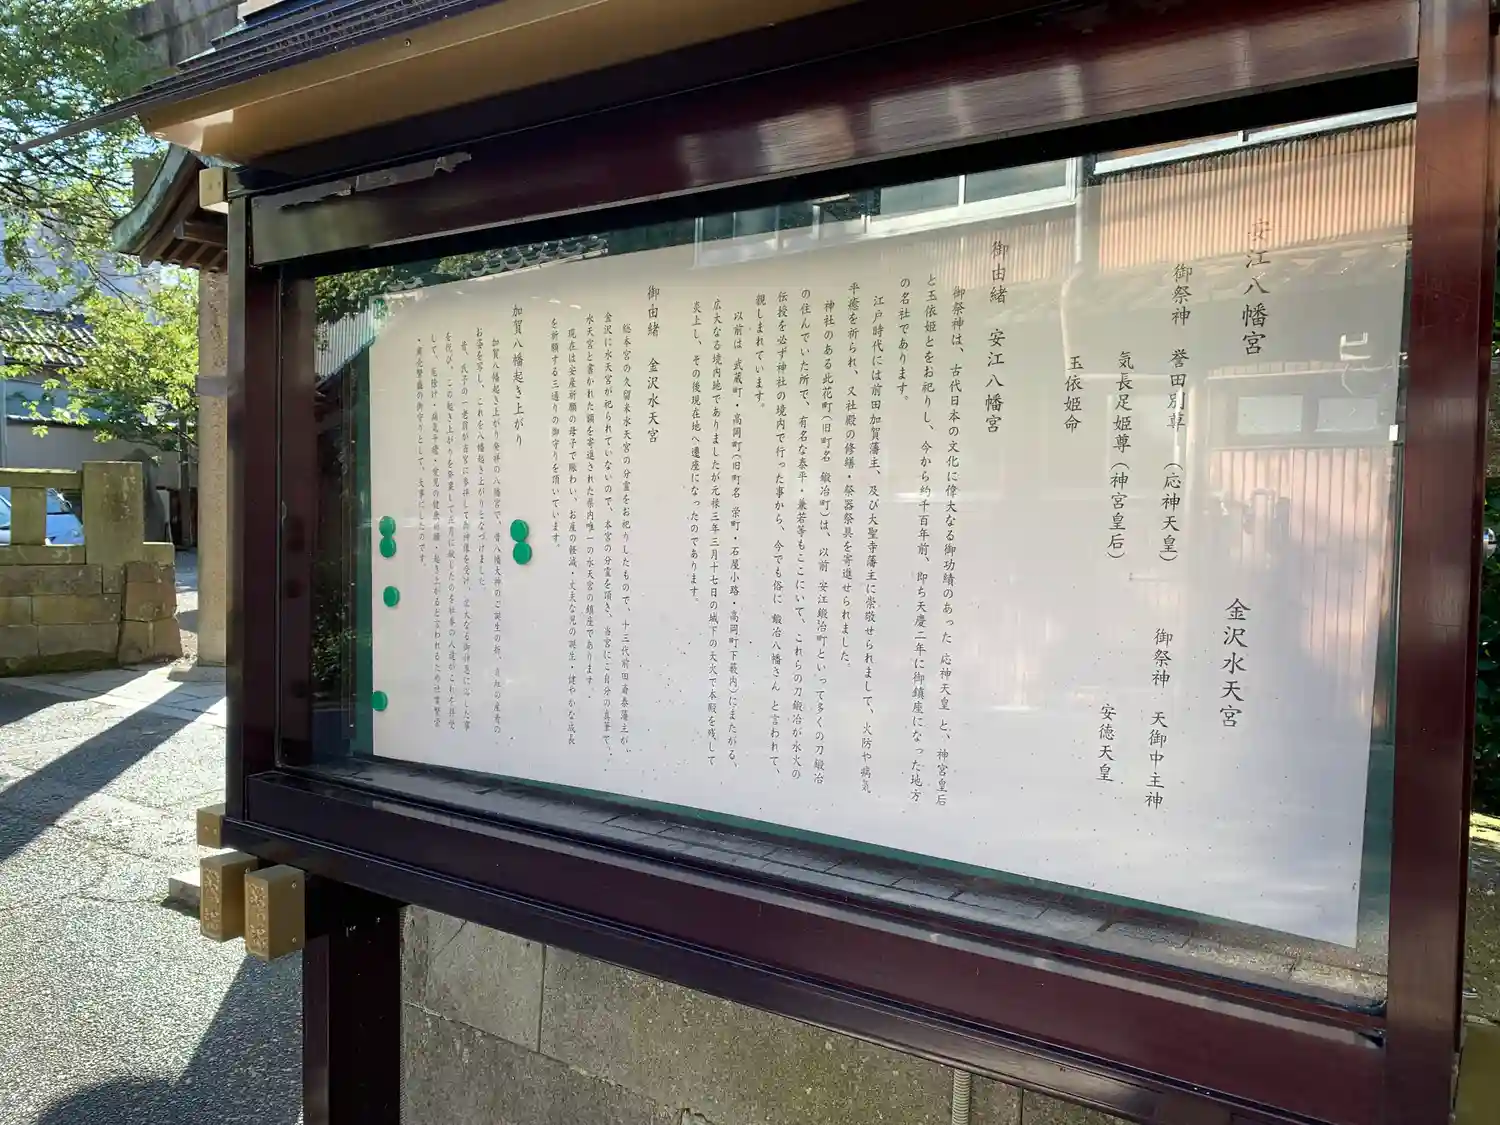 安江八幡宮
金沢水天宮
御祭神 誉田別尊(応神天皇)
御祭神 天御中主神
気長足姫尊(神宮皇后)
安徳天皇
玉依姫命
御由緒 安江八幡宮
御祭神は、古代日本の文化に偉大なる御功績のあった 応神天皇 と、神宮皇后
と玉依姫とをお祀りし、今から約千百年前、即ち天慶二年に御鎮座になった地方
の名社であります。
江戸時代には前田加賀藩主、及び大聖寺藩主に崇敬せられまして、火防や病気
平癒を祈られ、又社殿の修繕・祭器祭具を寄進せられました。
神社のある此花町(旧町名 鍛冶町)は、以前 安江鍛冶町といって多くの刀鍛冶
の住んでいた所で、有名な泰平・兼若等もここにいて、これらの刀鍛冶が水火の
伝授を必ず神社の境内で行った事から、今でも俗に 鍛冶八幡さん と言われて、
親しまれています。
以前は 武蔵町・高岡町(旧町名 栄町・石屋小路・高岡町下薮内)にまたがる、
広大なる境内地でありましたが元禄三年三月十七日の城下の大火で本殿を残して
炎上し、その後現在地へ遷座になったのであります。
御由緒 金沢水天宮
総本宮の久留米水天宮の分霊をお祀りしたもので、十三代前田斉泰藩主が、
金沢に水天宮が祀られていないので、本宮の分霊を頂き、当宮にご自分の真筆で、
水天宮と書かれた額を寄進された県内唯一の水天宮の鎮座であります。
現在は安産祈願の母子で賑わい、お産の軽減・丈夫な児の誕生・健やかな成長
を祈願する三通りの御守りを頂いています。
加賀八幡起き上がり
加賀八幡起き上がり発祥の八幡宮で、昔八幡大神のご誕生の折、真紅の産着の
お姿を写し、これを八幡起き上がりとなづけました。
昔、氏子の一老翁が当宮に参拝して
を喜び、この起き上がりを
して、厄除け・病気平癒・
の御守りとして、大事にしたのです。